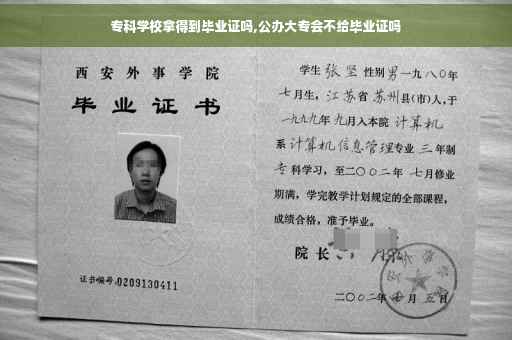 专科学校拿得到毕业证吗,公办大专会不给毕业证吗
西安外事学院
毕业证书
证书编号:0209130411
学生 张坚 性别 男 一九八〇年
七月生, 江苏省 苏州县(市)人,于
一九九九年 九月入本院 计算机
系 计算机信息管理专业 三 年制
专科学习,至二〇〇二年 七月修业
期满,学完教学计划规定的全部课程,
成绩合格,准予毕业。
院长
二〇〇二年 月 五日